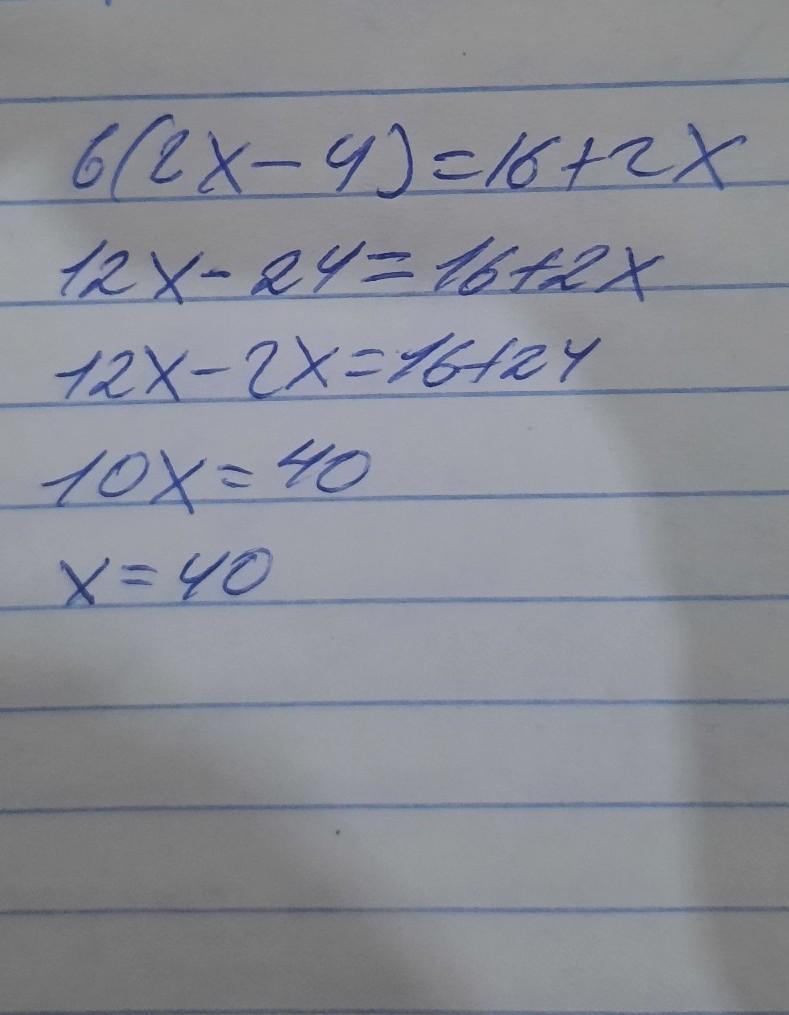 6(2x-4)=16+2x
12x-24=16+2x
12x-2x=16+24
10x=40
x=40